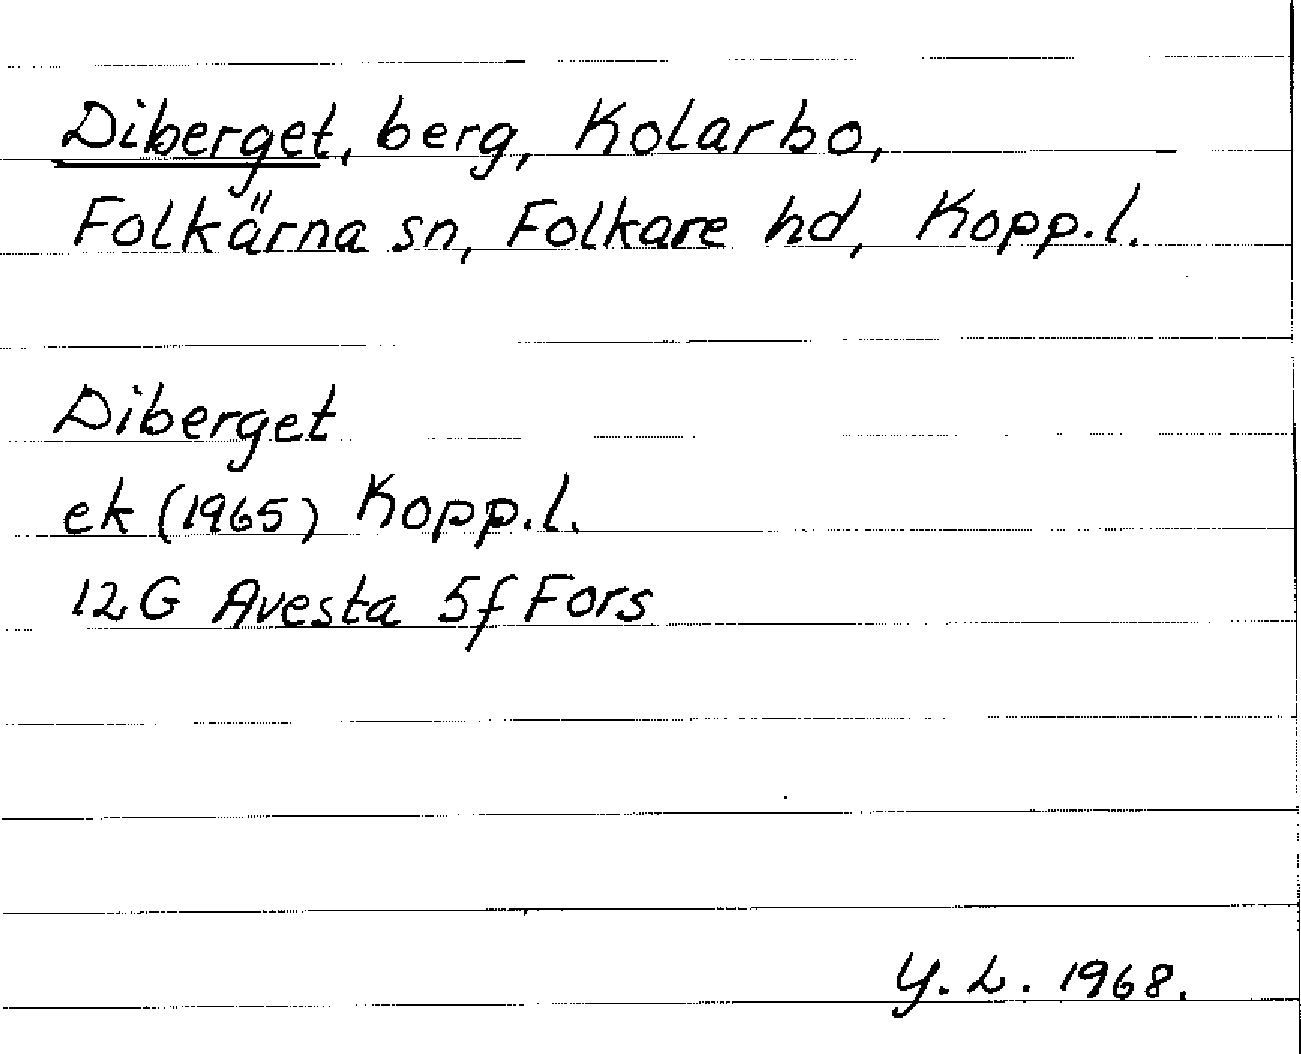 Diberget, berg, Kolarbo,
Folkärna sn, Folkare hd, Kopp.l.
Diberget
ek (1965) Kopp.l.
12G Avesta 5f Fors
Y.L. 1968.